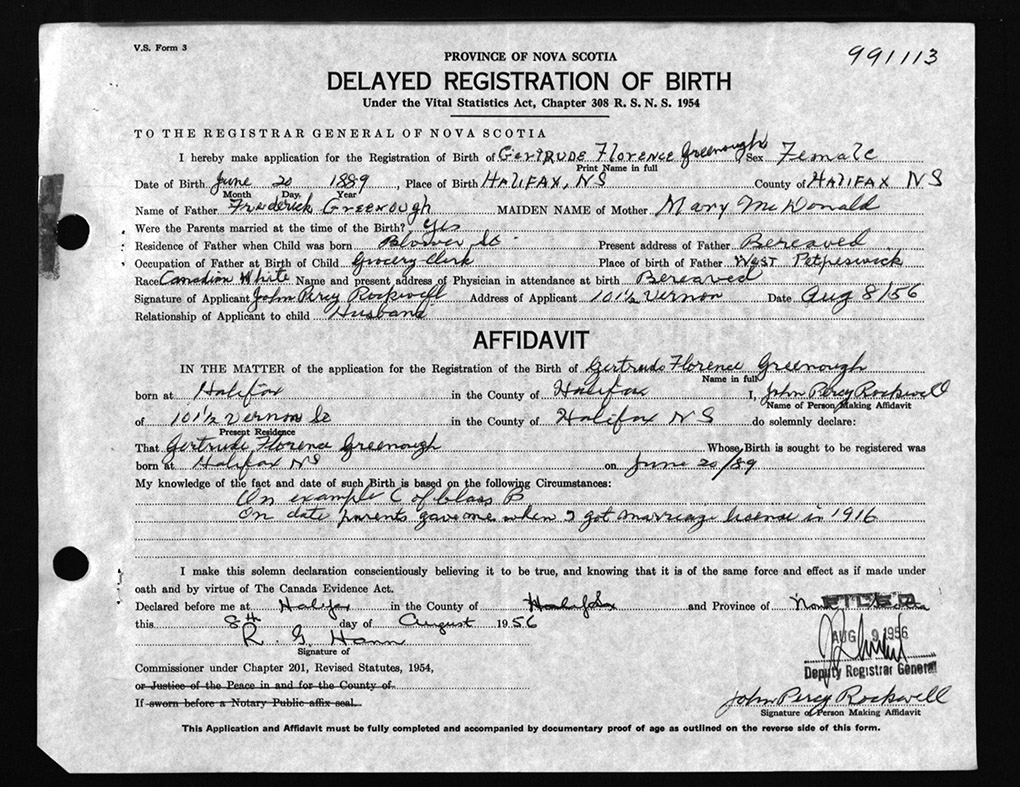 V.S. Form 3
991113
PROVINCE OF NOVA SCOTIA
DELAYED REGISTRATION OF BIRTH
Under the Vital Statistics Act, Chapter 308 R. S. N. S. 1954
TO THE REGISTRAR GENERAL OF NOVA SCOTIA
I hereby make application for the Registration of Birth of GERTRUDE Florence Greenough Sex Female
Print Name in full
Date of Birth June 20 1889, Place of Birth HALIFAX, NS County of HALIFAX NS
Month Day, Year
Name of Father Frederick Greenough MAIDEN NAME of Mother Mary McDonald
Were the Parents married at the time of the Birth? Yes
Residence of Father when Child was born Blower St. Present address of Father Bereaved
Occupation of Father at Birth of Child Grocery Clerk Place of birth of Father West Petpeswick
Race Canadian White Name and present address of Physician in attendance at birth Bereaved
Signature of Applicant John Percy Rockwell Address of Applicant 101½ Vernon Date Aug 8/56
Relationship of Applicant to child Husband
AFFIDAVIT
IN THE MATTER of the application for the Registration of the Birth of Gertrude Florence Greenough
Name in full
born at Halifax in the County of Halifax I, John Percy Rockwell
Name of Person Making Affidavit
of 101½ Vernon St in the County of Halifax NS do solemnly declare:
Present Residence
That Gertrude Florence Greenough Whose Birth is sought to be registered was
born at Halifax NS on June 20/89
My knowledge of the fact and date of such Birth is based on the following Circumstances:
On example C of Class B
On date parents gave me when I got marriage license in 1916
I make this solemn declaration conscientiously believing it to be true, and knowing that it is of the same force and effect as if made under
oath and by virtue of The Canada Evidence Act.
Declared before me at Halifax in the County of Halifax and Province of Nova Scotia
this 8th day of August 1956
FILED
AUG 9 1956
R. G. Hann
Signature of
Deputy Registrar General
Commissioner under Chapter 201, Revised Statutes, 1954,
or Justice of the Peace in and for the County of
If sworn before a Notary Public affix seal.
John Percy Rockwell
Signature of Person Making Affidavit
This Application and Affidavit must be fully completed and accompanied by documentary proof of age as outlined on the reverse side of this form.